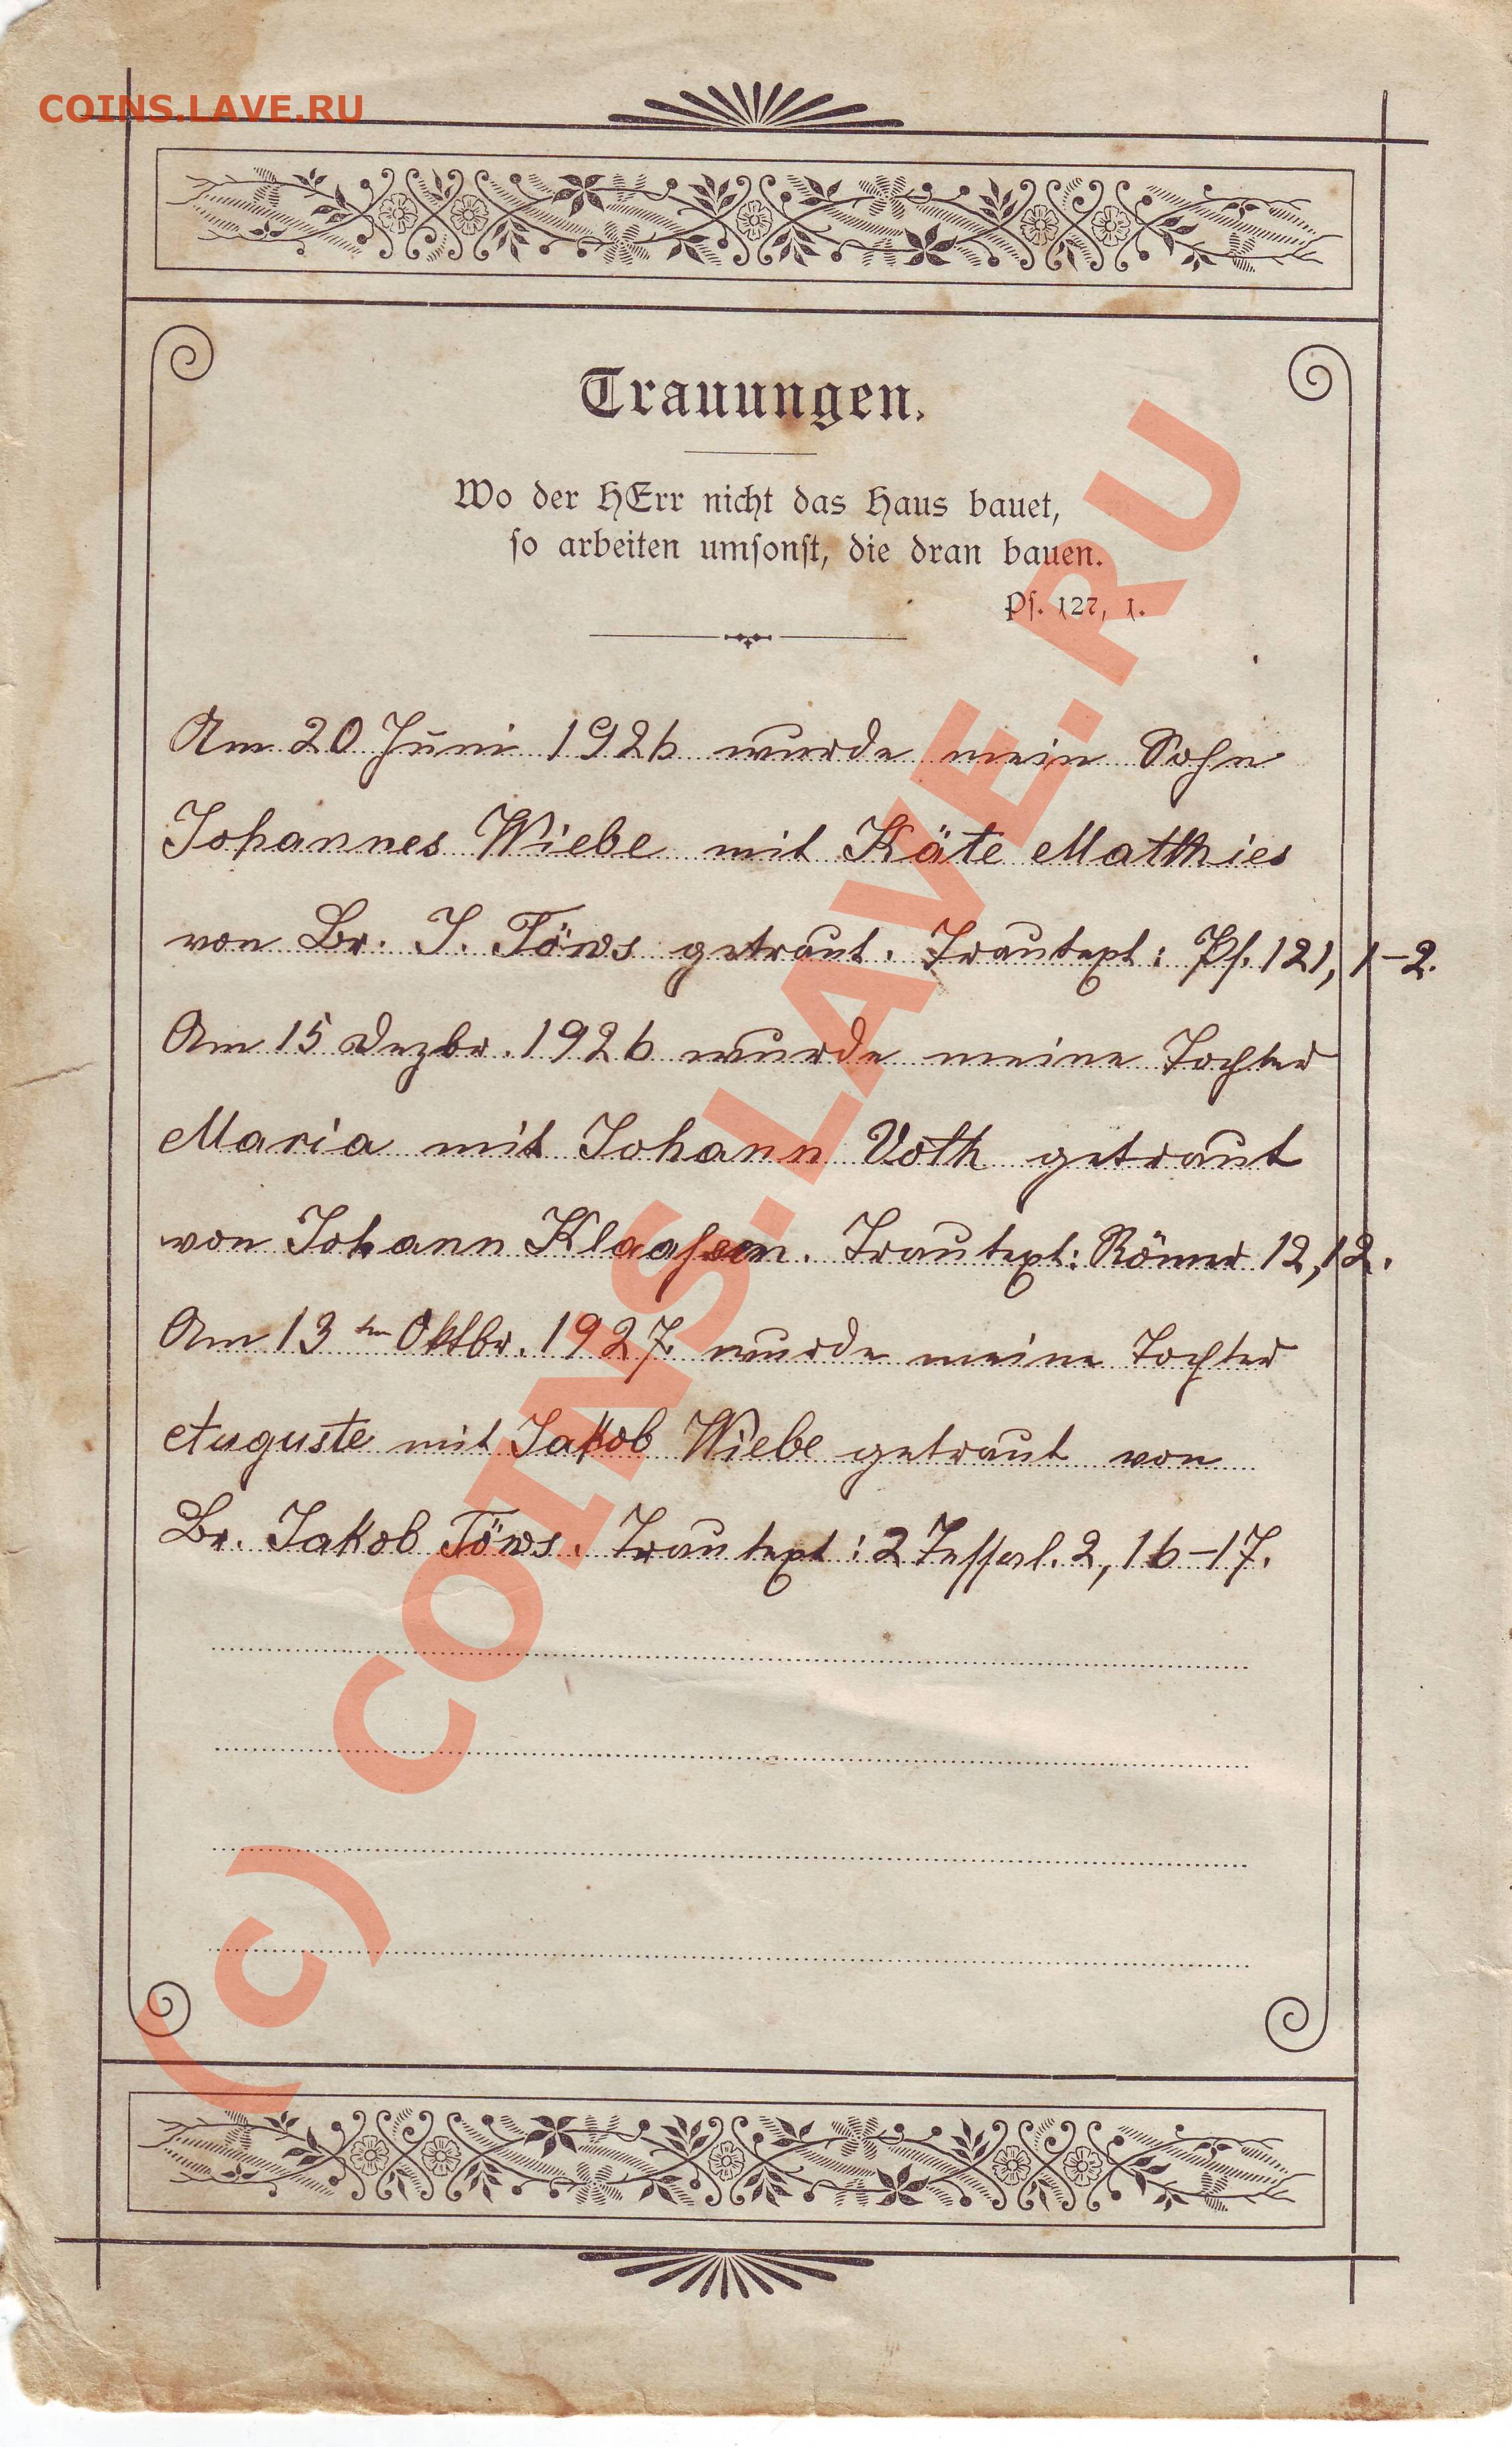 COINS.LAVE.RU
Trauungen.
Wo der HErr nicht das Haus bauet,
so arbeiten umsonst, die dran bauen.
Ps. 127, 1.
Am 20 Juni 1926 wurde mein Sohn
Johannes Wiebe mit Käte Matthies
von Br. J. Töws getraut. Trautext: Ps. 121, 1-2.
Am 15 Dezbr. 1926 wurde meine Tochter
Maria mit Johann Voth getraut
von Johann Klaaßen. Trautext: Römer 12, 12.
Am 13ten Oktbr. 1927 wurde meine Tochter
Auguste mit Jakob Wiebe getraut von
Br. Jakob Töws. Trautext: 2 Tessal. 2, 16-17.
(c) COINS.LAVE.RU